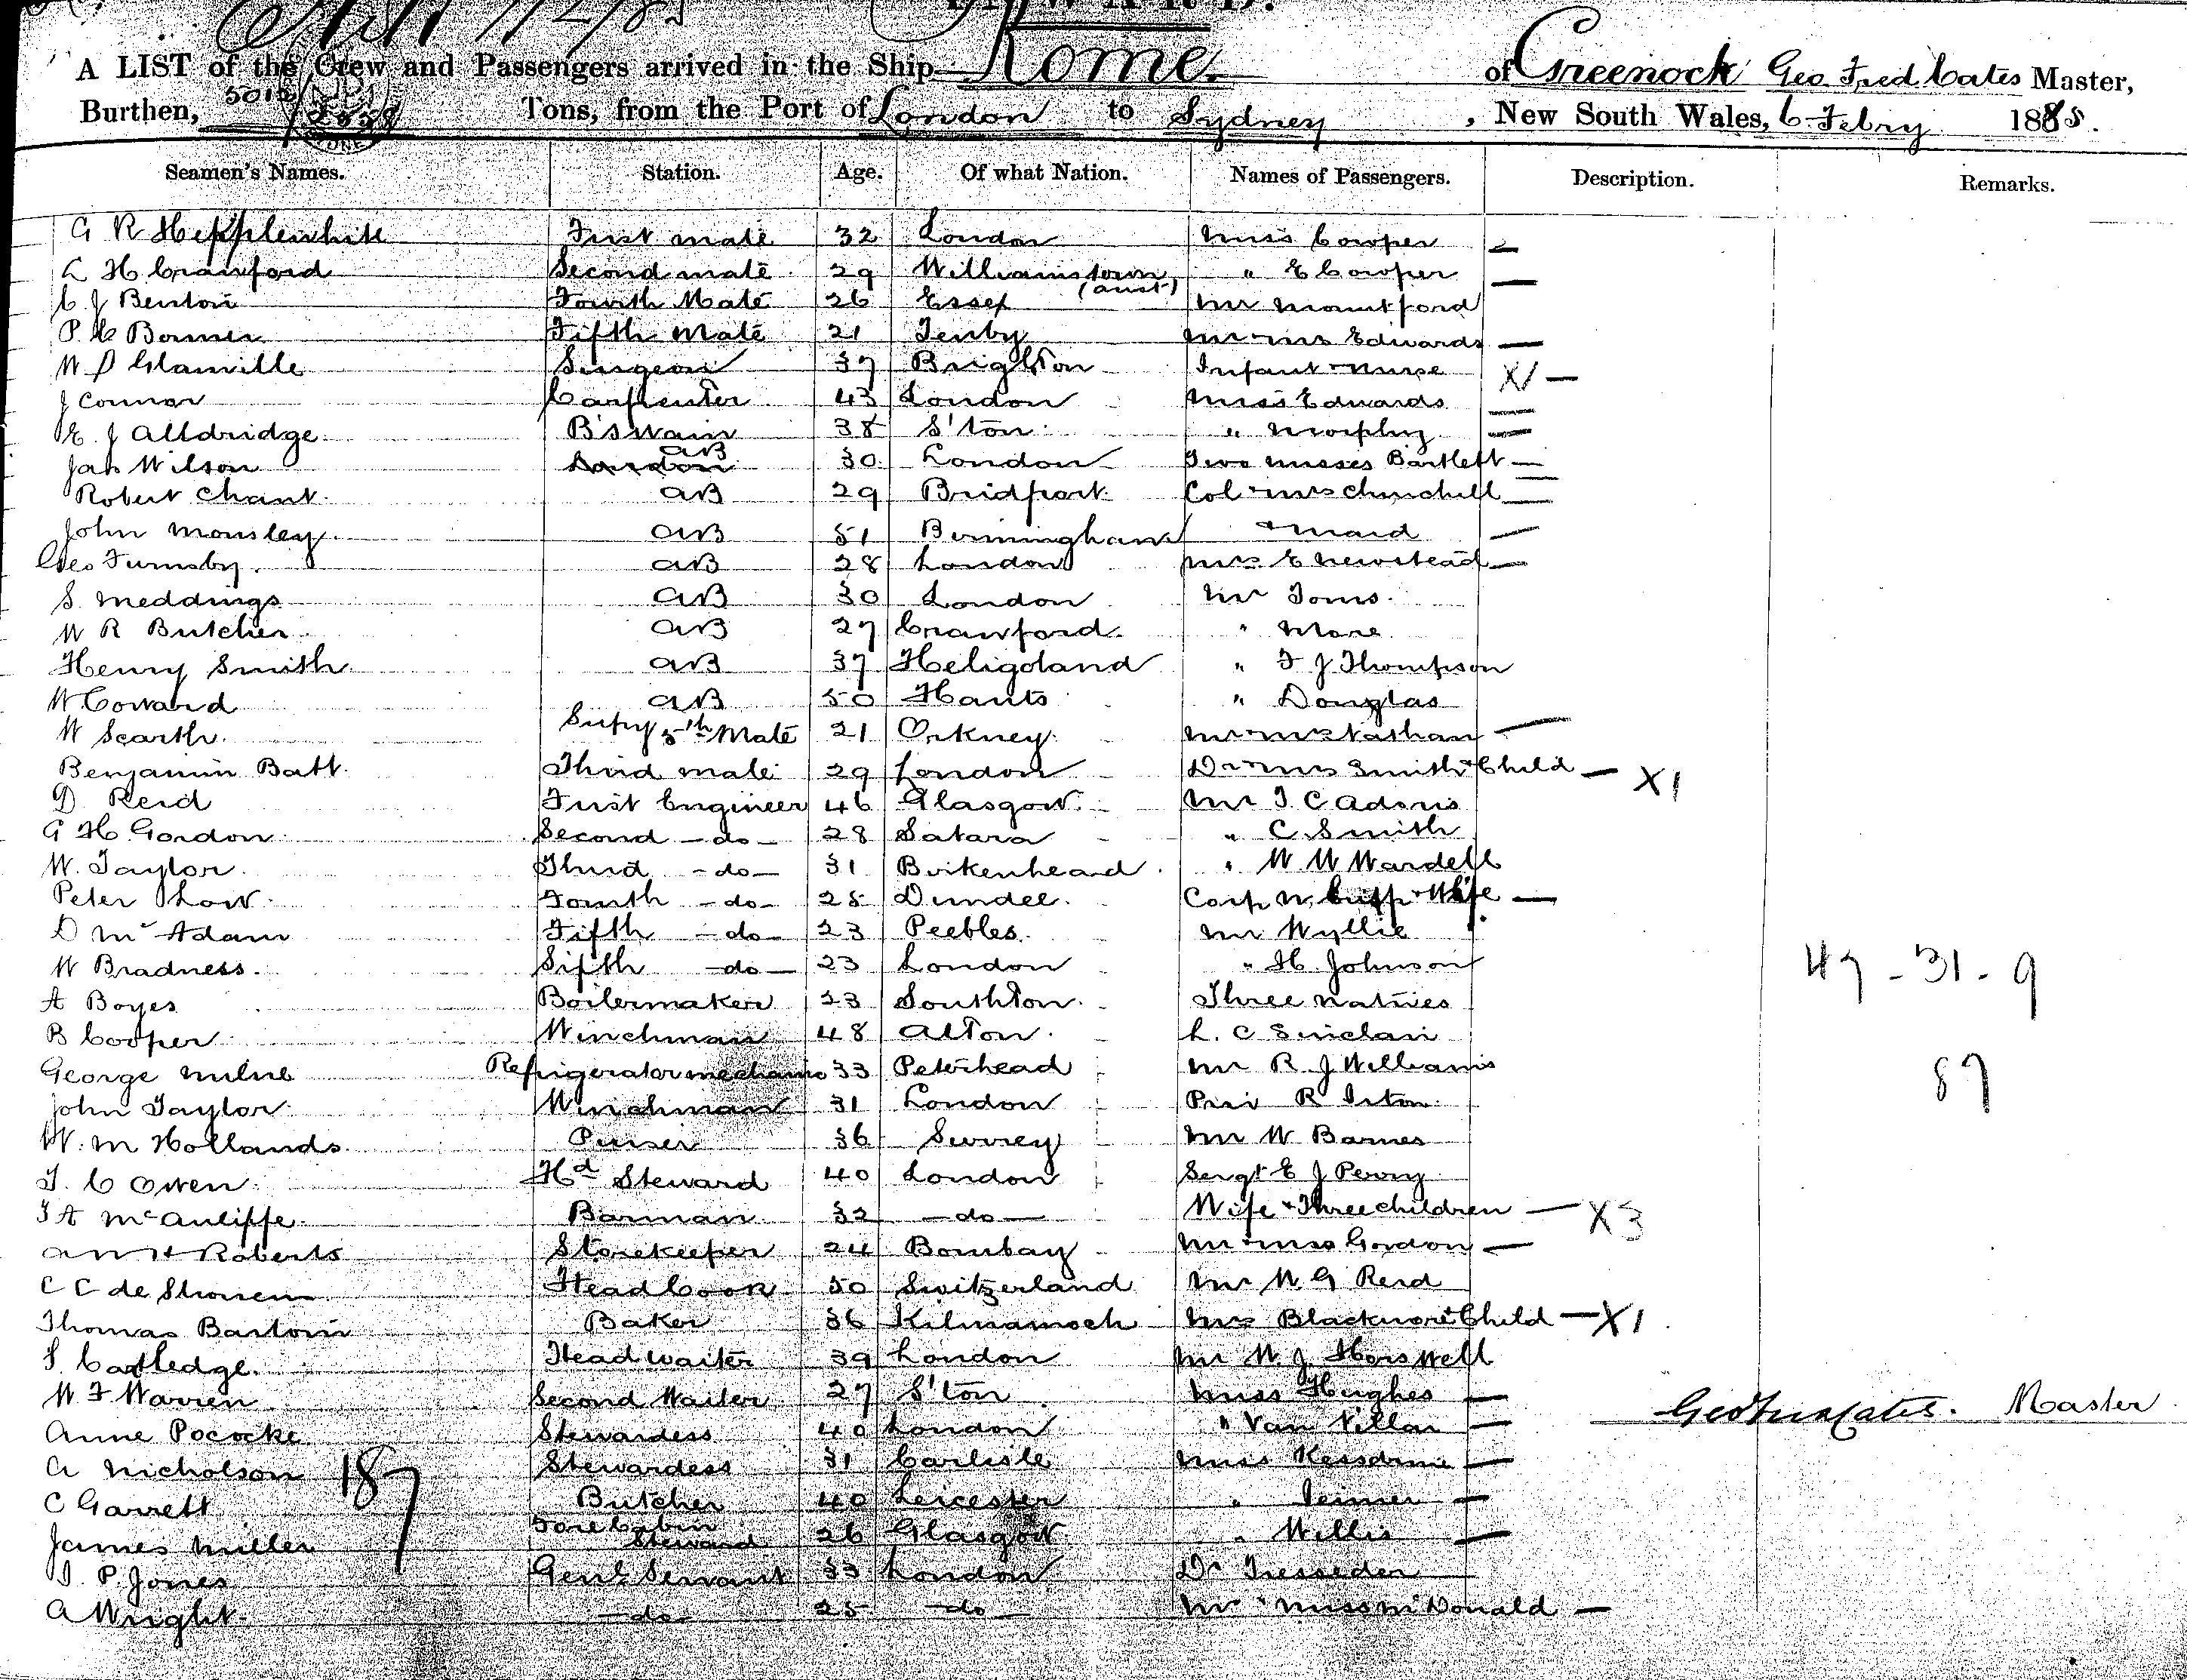 A LIST of the Crew and Passengers arrived in the Ship Rome of Greenock Geo. Fred Cates Master,
Burthen, 5013 Tons, from the Port of London to Sydney, New South Wales, 6 Febry 1885.
Seamen's Names. Station. Age. Of what Nation. Names of Passengers. Description. Remarks.
G R Hepplewhite First mate 32 London Miss Cowper —
L H Crawford Second mate 29 Williamstown (aust) " E Cowper —
C J Benton Fourth Mate 26 Essex Mr Mountford
P. C Bonner Fifth Mate 21 Tenby Mr & Mrs Edwards —
W P Glanville Surgeon 37 Brighton Infant & Nurse X1 —
J Connor Carpenter 43 London Miss Edwards —
E. J Alldridge B'swain 38 S'ton " Morphy —
Jas Wilson London AB 30 London Two Misses Bartlett —
Robert Chant AB 29 Bridport Col & Mrs Churchill —
John Mousley AB 51 Birmingham & Maid —
Geo Furnsby AB 28 London Mrs E Newstead —
S. Meddings AB 30 London Mr Toms
W R Butcher AB 27 Crawford " More
Henry Smith AB 37 Heligoland " F J Thompson
W Coward AB 50 Hants " Douglas
W Scarth Supy 5th Mate 21 Orkney Mr & Mrs Nathan —
Benjamin Batt Third mate 29 London Dr & Mrs Smith & Child — X1
D. Reid First Engineer 46 Glasgow Mr T. C Adams
G H Gordon Second -do- 28 Satara " C Smith
W. Taylor Third -do- 31 Birkenhead " W W Wardell
Peter Low Fourth -do- 25 Dundee Corp W. Cupp & Wife —
D McAdam Fifth -do- 23 Peebles Mr Wyllie
W Bradness Sifth -do- 23 London " H Johnson 47 - 31 - 9
A Boyes Boilermaker 23 Southton Three Natives
B Cooper Winchman 48 Alton L. C Sinclair
George Milne Refrigerator mechanic 33 Peterhead Mr R J Williams 87
John Taylor Winchman 31 London Priv R Irton
W. M Hollands Purser 36 Surrey Mr W Barnes
T. C Owen Hd Steward 40 London Sergt E J Perry
T A McAuliffe Barman 32 -do- Wife & Three children — X3
A W H Roberts Storekeeper 24 Bombay Mr & Miss Gordon —
C C de Head Cook 50 Switzerland Mr W. G Reid
Thomas Bartom Baker 36 Kilmarnoch Mrs Blackmore & Child — X1
S. Cartledge Head Waiter 39 London Mr W. J Horswell
W F Warren Second Waiter 27 S'ton Miss Hughes —
Anne Pococke Stewardess 40 London " Van Villar — Geo Fred Cates. Master
A Nicholson 187 Stewardess 31 Carlisle Miss —
C Garrett Butcher 40 Leicester " Jenner —
James Miller Fore Cabin Steward 26 Glasgow " Willis —
J. P. Jones Genl Servant 33 London Dr Tresseder
A Wright -do- 25 -do- Mr & Miss McDonald —